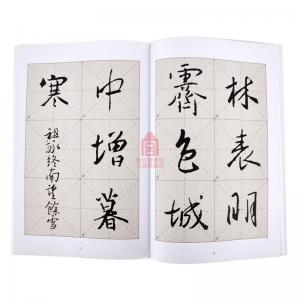 林表明
霽色城
中增暮
寒
祖詠終南望餘雪